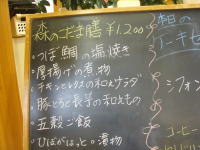 森のこだま膳 ￥1.200
・つぼ鯛の塩焼き
・厚揚げの煮物
・チキンとレタスの和えサラダ
・豚とうと長芋の和えもの
・五穀ご飯
・ひばがほっと。漬物
本日の
ケーキセ
シフォン
コーヒー